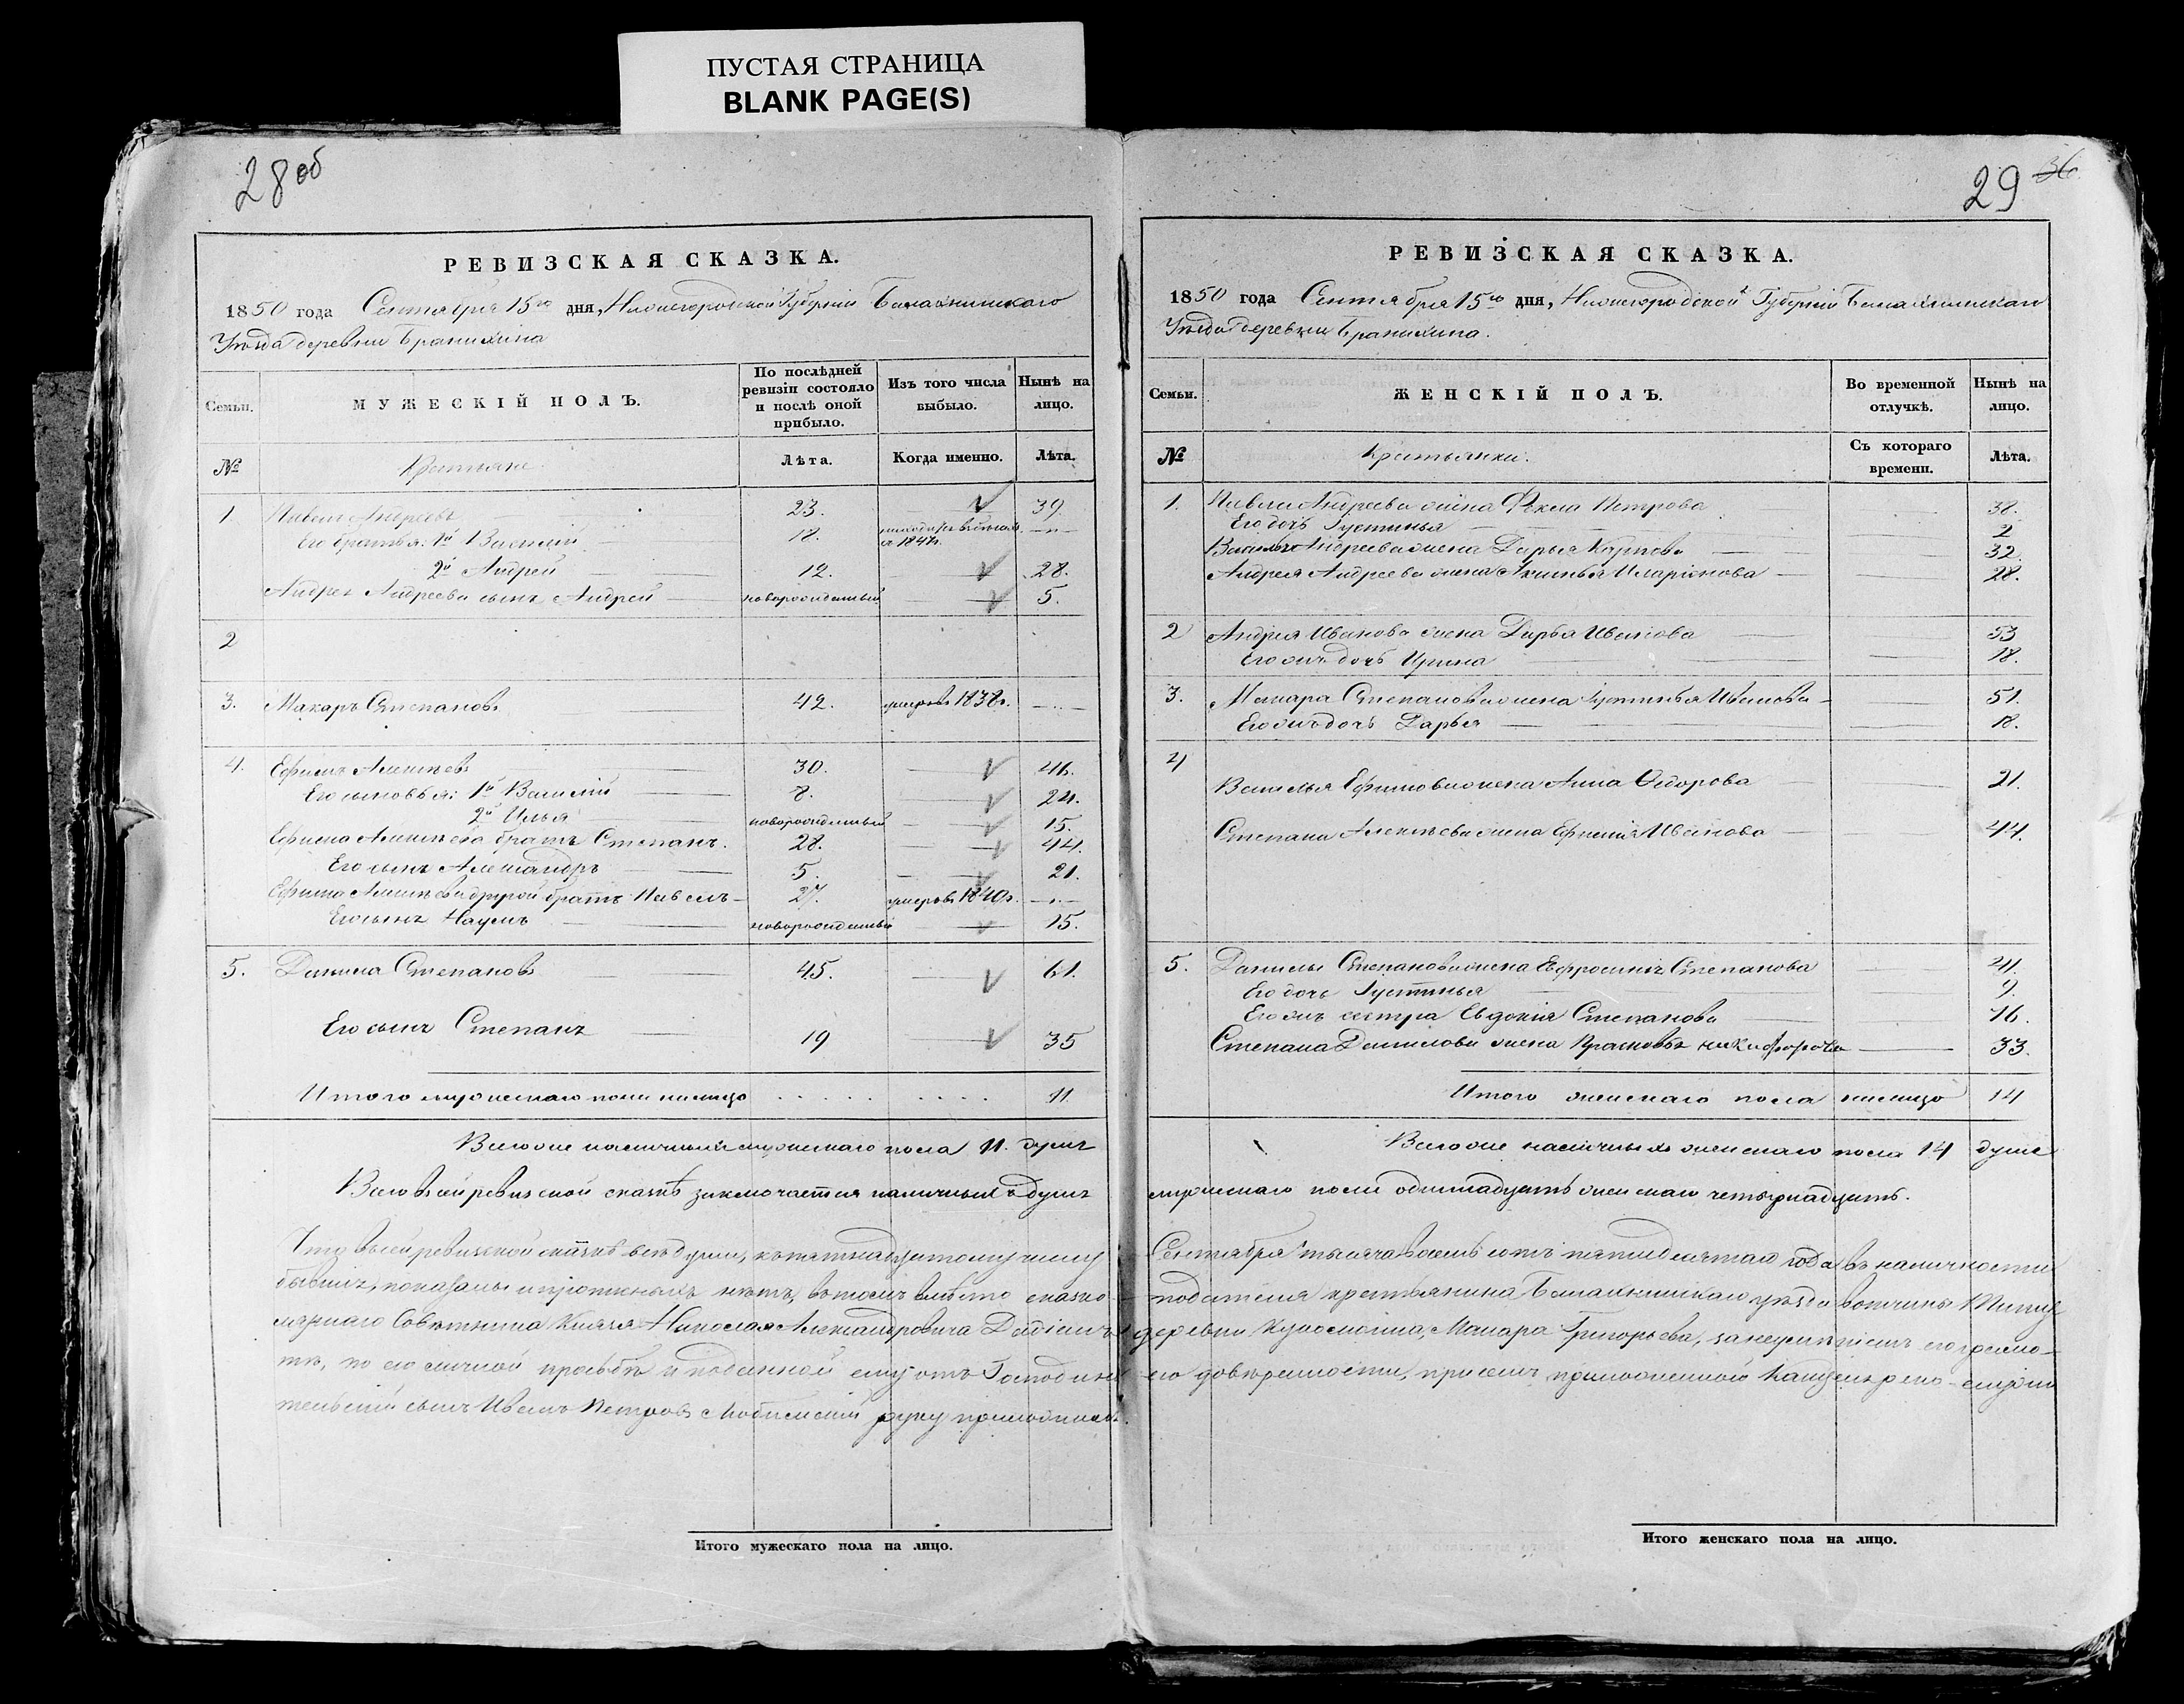 ПУСТАЯ СТРАНИЦА
BLANK PAGE(S)
28об
РЕВИЗСКАЯ СКАЗКА.
1850 года Сентября 15го дня, Нижегородской Губерніи Балахнинскаго
Уѣзда деревни Бранихина
Семьи.
МУЖЕСКІЙ ПОЛЪ.
По послѣдней ревизіи состояло и послѣ оной прибыло.
Изъ того числа выбыло.
Нынѣ на лицо.
№
Крестьяне.
Лѣта.
Когда именно.
Лѣта.
1 Павелъ Андреевъ 23. 39.
Его братья: 1й Василій 18. находится въ бѣгахъ съ 1847г.
2й Андрей 12. 28.
Андрея Андреева сынъ Андрей новорожденный 5.
2
3. Макаръ Степановъ 42. умеръ въ 1838г.
4. Ефимъ Алексѣевъ 30. 46.
Его сыновья: 1й Василій 8. 24.
2й Илья новорожденный 15.
Ефима Алексѣева братъ Степанъ. 28. 44.
Его сынъ Александръ 5. 21.
Ефима Алексѣева другой братъ Павелъ 27. умеръ въ 1840г.
Его сынъ Наумъ новорожденный 15.
5. Данила Степановъ 45. 61.
Его сынъ Степанъ 19 35
Итого мужескаго пола налицо 11.
Всего же наличныхъ мужескаго пола 11. душъ
Всего въ сей ревизской сказкѣ заключается наличныхъ душъ
Что въ сей ревизской сказкѣ всѣ души, къ пятнадцатому числу
бывшіе, показаны и прописныхъ нѣтъ, въ томъ вмѣсто сказко
Совѣтника Князя Николая Александровича
тѣ, по его личной просьбѣ и поданной ему отъ Господина
сынъ Иванъ Петровъ руку приложилъ.
Итого мужескаго пола на лицо.
29 36
РЕВИЗСКАЯ СКАЗКА.
1850 года Сентября 15го дня, Нижегородской Губерніи Балахнинскаго
Уѣзда деревни Бранихина.
Семьи.
ЖЕНСКІЙ ПОЛЪ.
Во временной отлучкѣ.
Нынѣ на лицо.
№
Крестьянки.
Съ котораго времени.
Лѣта.
1. Павла Андреева жена Фекла Петрова 38.
Его дочь Іустинья 2
Василья Андреева жена Дарья Карпова 32
Андрея Андреева жена Аксинья Иларіонова 28.
2 Андрея Иванова жена Дарья Иванова 53
Его жъ дочь Ирина 18.
3. Макара Степанова жена Іустинья Иванова 51.
Его жъ дочь Дарья 18.
4
Василья Ефимова жена Анна Федорова 21.
Степана Алексѣева жена Ефимія Иванова 44.
5. Данилы Степанова жена Евфросинія Степанова 41.
Его дочь Іустинья 9.
Его жъ сестра Евдокія Степанова 16.
Степана Данилова жена Прасковья Никифорова 33.
Итого женскаго пола налицо 14
Всего же наличныхъ женскаго пола 14 душъ
мужескаго пола одиннадцать женскаго четырнадцать.
Сентября тысяча восемь сотъ пятидесятаго года въ наличности
подателя крестьянина Балахнинскаго уѣзда вотчины
деревни Макара Григорьева, за неумѣніемъ его грамо-
его довѣренности, при семъ приложенной
Итого женскаго пола на лицо.